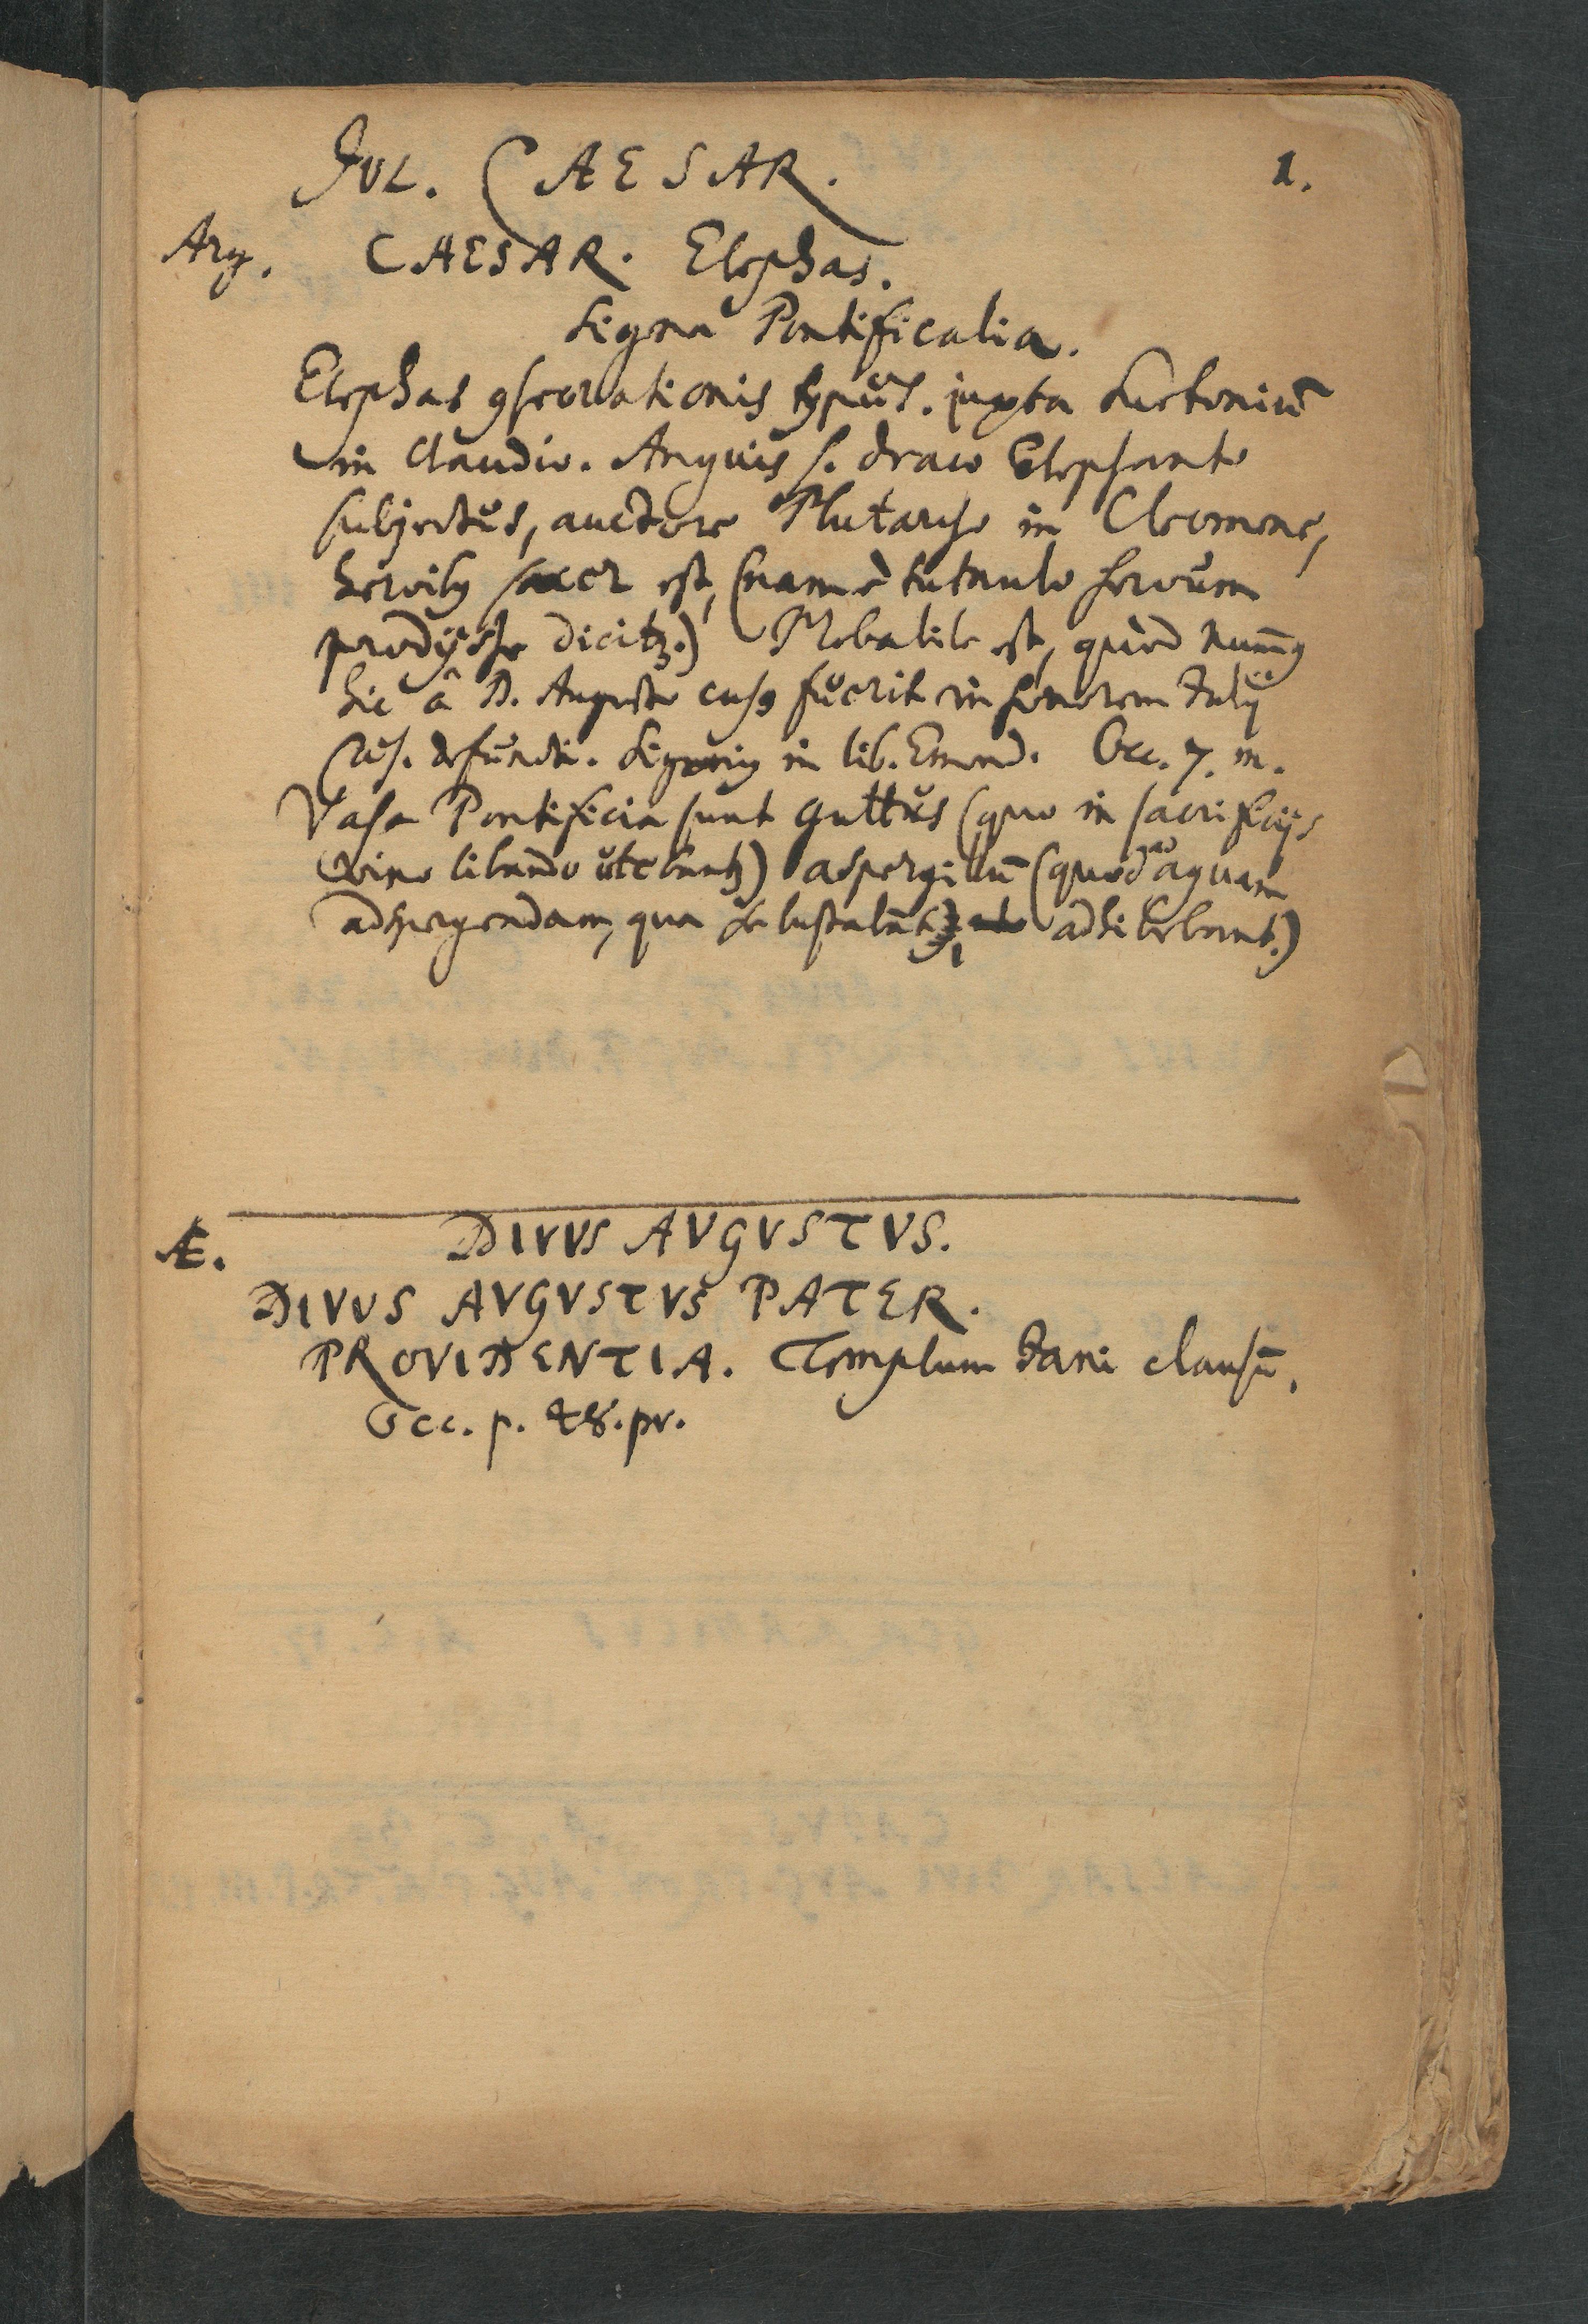 JUL. CAESAR. 1.
Arg. CAESAR. Elephas.
Signa Pontificalia.
Elephas ꝯsecrationis typus. juxta Suetoniū
in Claudio. Anguis s. draco Elephante
subjectus, auctore Plutarcho in Cleomene,
heroibꝰ sacer est, (nam è tumulo serpens
prodijsse dicitꝫ.) Probabile est, quòd num̄ꝰ
hic â D. Augusto cusꝰ fuerit in honorem Julij
Cæs. defuncti. Sigoniꝰ in lib. Emend. Occ. 7. m.
Vasa Pontificia sunt guttus (quo in sacrificijs
vino libando utebantꝫ) aspergillū (quod ad aquam
adspergendam, qua se lustrabātꝫ, adhibebant.)
Æ. DIVVS AVGVSTVS.
DIVVS AVGVSTVS PATER.
PROVIDENTIA. Templum Jani clausū.
Occ. p. 48. pr.